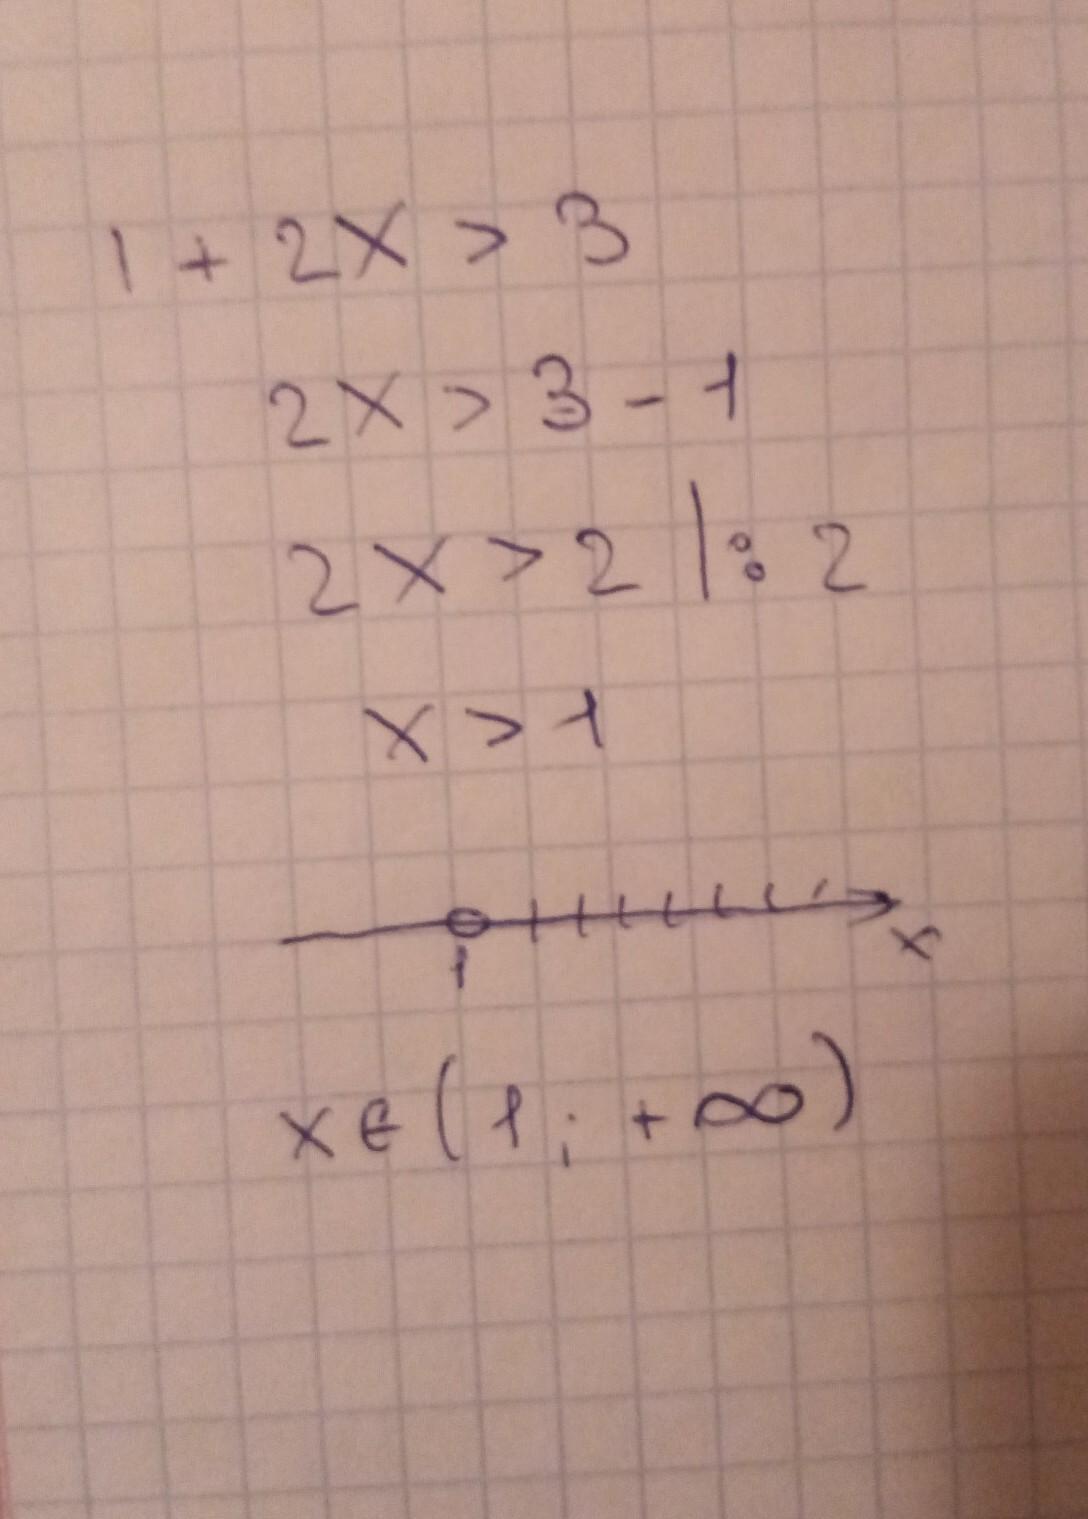 1 + 2x > 3
2x > 3 - 1
2x > 2 |: 2
x > 1
1 x
x ∈ (1; +∞)